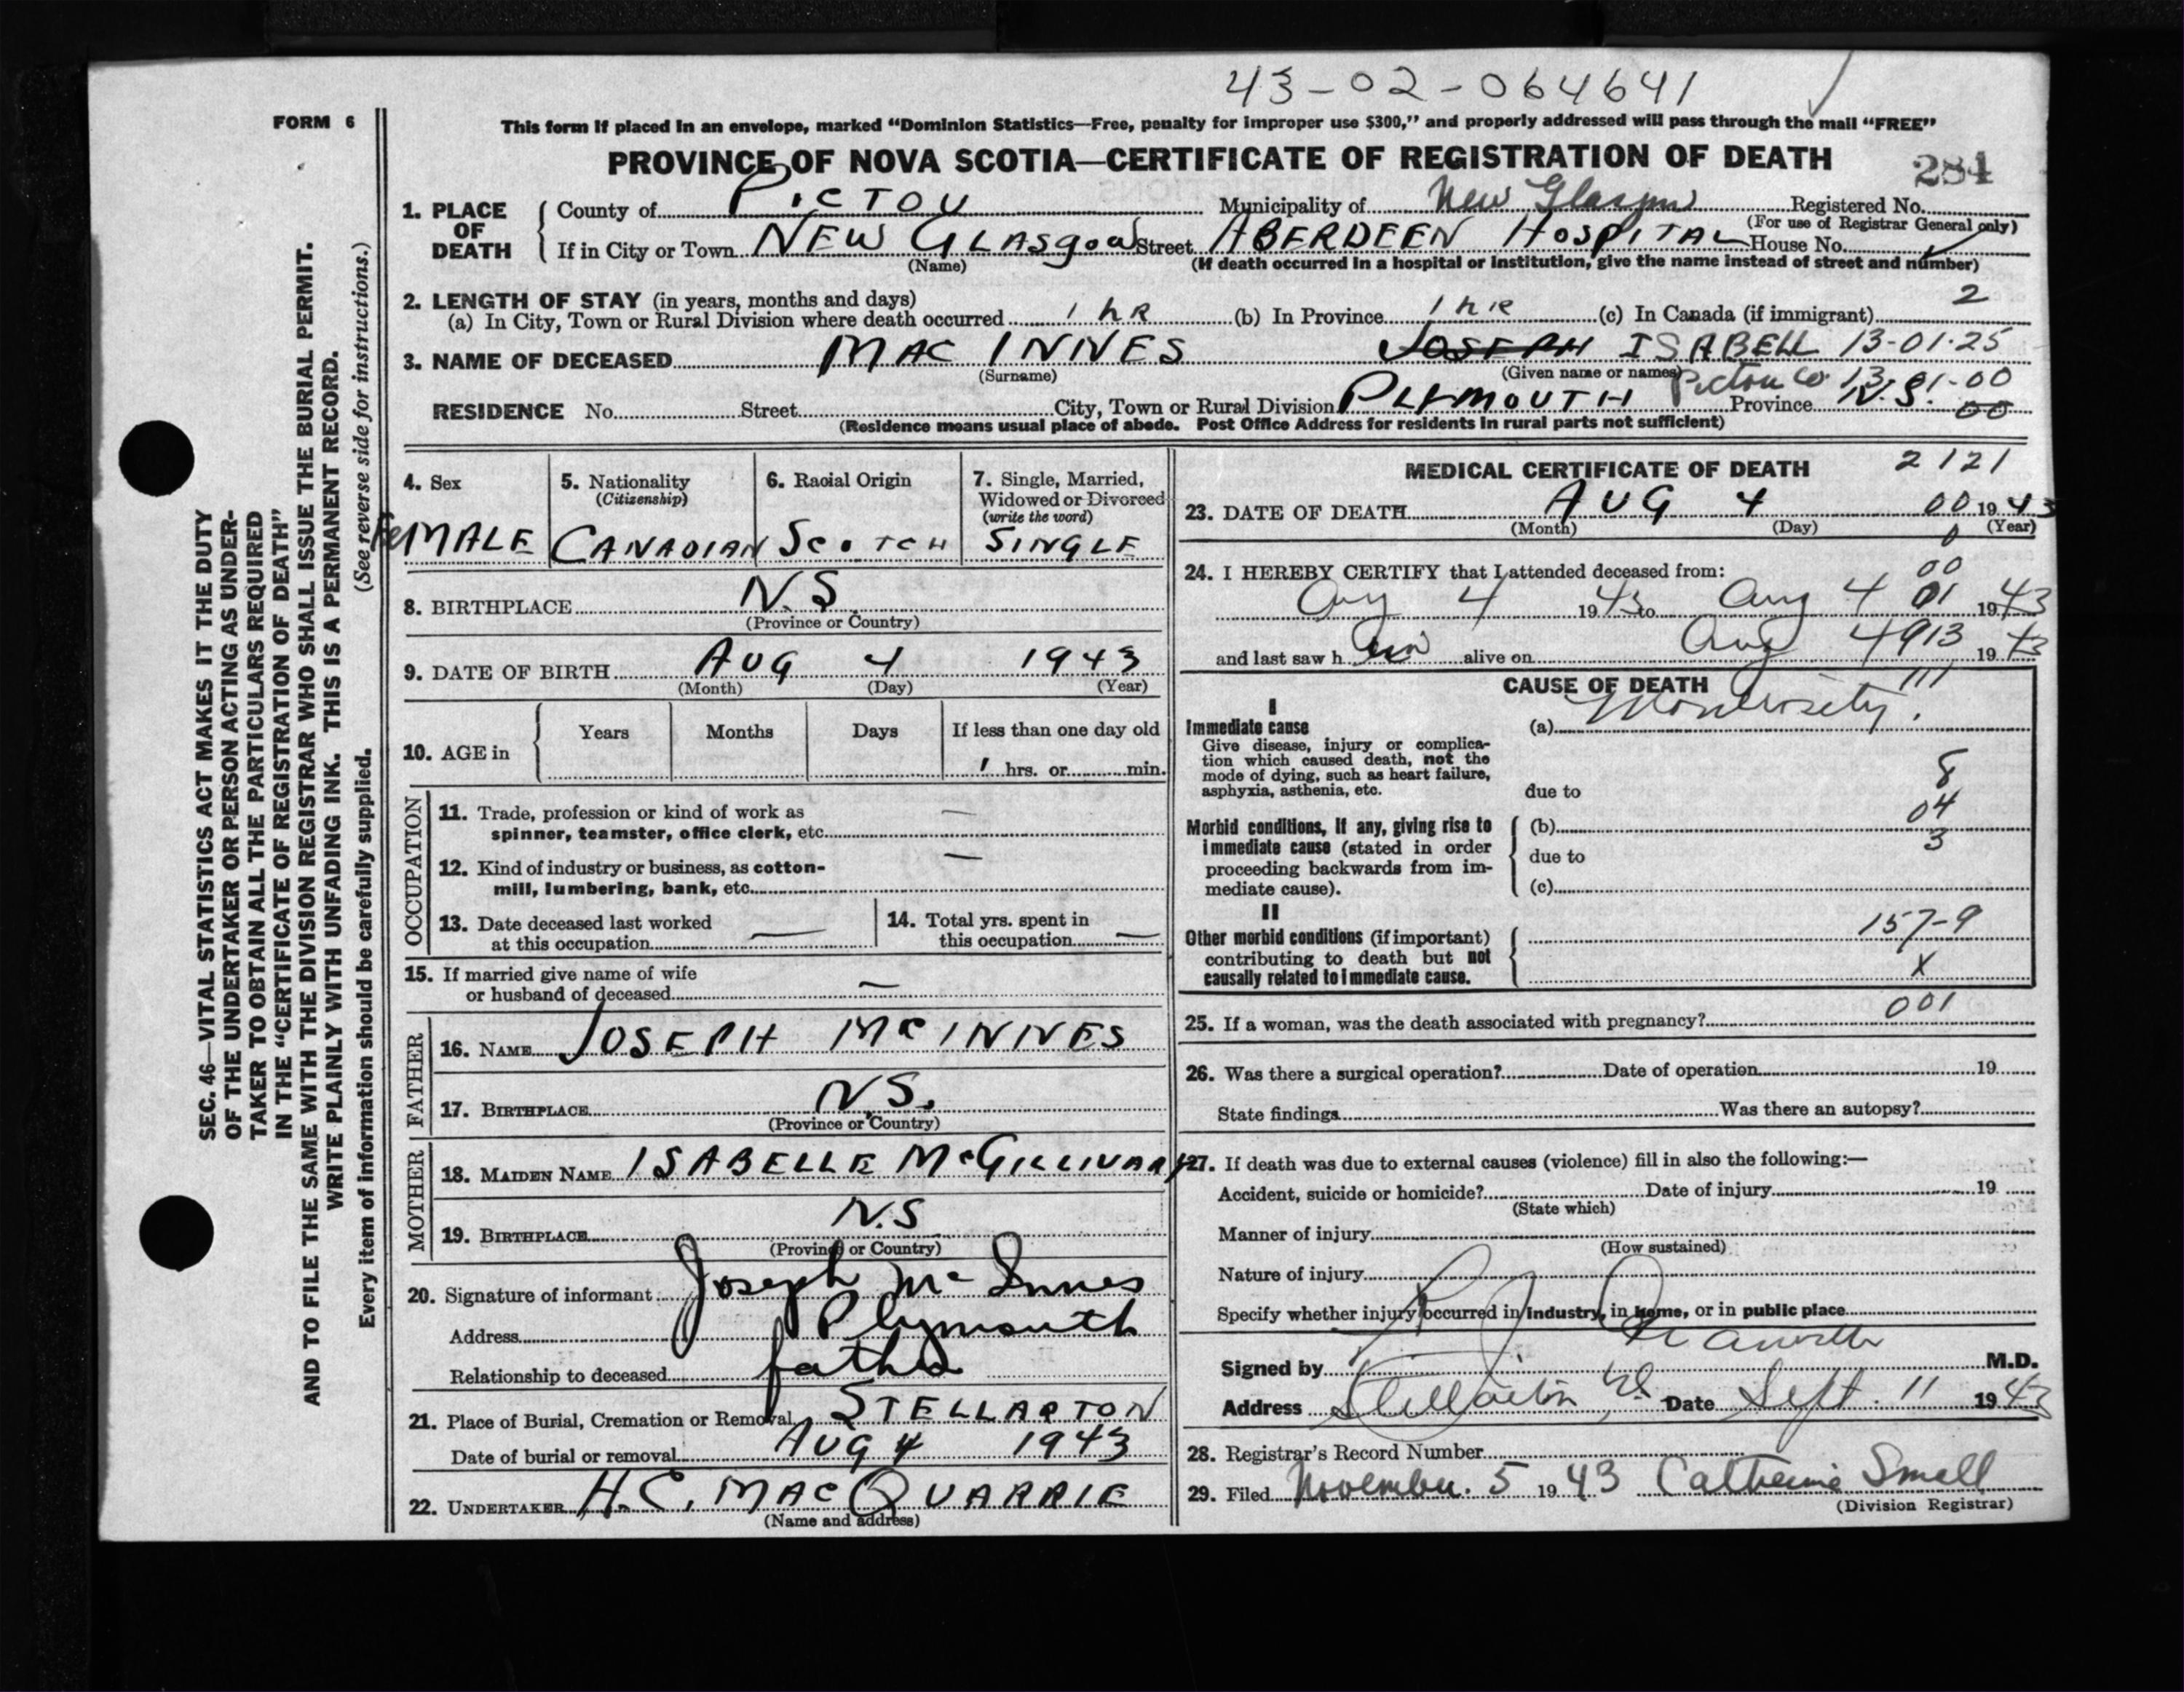 43-02-064641
FORM 6
This form if placed in an envelope, marked "Dominion Statistics—Free, penalty for improper use $300," and properly addressed will pass through the mail "FREE"
PROVINCE OF NOVA SCOTIA—CERTIFICATE OF REGISTRATION OF DEATH
284
1. PLACE OF DEATH
County of PICTOU Municipality of New Glasgow Registered No.
(For use of Registrar General only)
If in City or Town NEW GLASgow Street ABERDEEN HOSPITAL House No.
(Name) (If death occurred in a hospital or institution, give the name instead of street and number)
2. LENGTH OF STAY (in years, months and days)
(a) In City, Town or Rural Division where death occurred 1 hR (b) In Province 1 hR (c) In Canada (if immigrant) 2
3. NAME OF DECEASED MAC INNES JOSEPH ISABELL 13-01-25
(Surname) (Given name or names)
Pictou Co. 13-01-00
RESIDENCE No. Street City, Town or Rural Division PLYMOUTH Province N.S. 00
(Residence means usual place of abode. Post Office Address for residents in rural parts not sufficient)
4. Sex
FeMALE
5. Nationality
(Citizenship)
CANADIAN
6. Racial Origin
SCOTCH
7. Single, Married,
Widowed or Divorced
(write the word)
SINGLE
8. BIRTHPLACE N.S.
(Province or Country)
9. DATE OF BIRTH AUG 4 1943
(Month) (Day) (Year)
10. AGE in
Years Months Days If less than one day old
1 hrs. or min.
OCCUPATION
11. Trade, profession or kind of work as
spinner, teamster, office clerk, etc. —
12. Kind of industry or business, as cotton-
mill, lumbering, bank, etc. —
13. Date deceased last worked
at this occupation —
14. Total yrs. spent in
this occupation —
15. If married give name of wife
or husband of deceased —
FATHER
16. NAME JOSEPH McINNES
17. BIRTHPLACE N.S.
(Province or Country)
MOTHER
18. MAIDEN NAME ISABELLE McGILLIVARY
19. BIRTHPLACE N.S
(Province or Country)
20. Signature of informant Joseph Mc Innes
Address Plymouth
Relationship to deceased father
21. Place of Burial, Cremation or Removal STELLARTON
Date of burial or removal AUG 4 1943
22. UNDERTAKER H.C. MACQUARRIE
(Name and address)
MEDICAL CERTIFICATE OF DEATH 2121
23. DATE OF DEATH AUG 4 00 1943
(Month) (Day) (Year)
0
24. I HEREBY CERTIFY that I attended deceased from: 00
Aug 4 1943 to Aug 4 01 1943
and last saw h alive on Aug 4 913 1943
CAUSE OF DEATH 111
I
Immediate cause
Give disease, injury or complica-
tion which caused death, not the
mode of dying, such as heart failure,
asphyxia, asthenia, etc.
(a) Monstrosity.
8
due to
04
Morbid conditions, if any, giving rise to
immediate cause (stated in order
proceeding backwards from im-
mediate cause).
(b)
3
due to
(c)
II
Other morbid conditions (if important)
contributing to death but not
causally related to immediate cause.
157-9
X
001
25. If a woman, was the death associated with pregnancy?
26. Was there a surgical operation? Date of operation 19
State findings Was there an autopsy?
27. If death was due to external causes (violence) fill in also the following:—
Accident, suicide or homicide? Date of injury 19
(State which)
Manner of injury
(How sustained)
Nature of injury
Specify whether injury occurred in industry, in home, or in public place
Signed by M.D.
Address Stellarton Date Sept. 11 1943
28. Registrar's Record Number
29. Filed November. 5 1943 Catherine Small
(Division Registrar)
SEC. 46—VITAL STATISTICS ACT MAKES IT THE DUTY
OF THE UNDERTAKER OR PERSON ACTING AS UNDER-
TAKER TO OBTAIN ALL THE PARTICULARS REQUIRED
IN THE "CERTIFICATE OF REGISTRATION OF DEATH"
AND TO FILE THE SAME WITH THE DIVISION REGISTRAR WHO SHALL ISSUE THE BURIAL PERMIT.
WRITE PLAINLY WITH UNFADING INK. THIS IS A PERMANENT RECORD.
Every item of information should be carefully supplied. (See reverse side for instructions.)